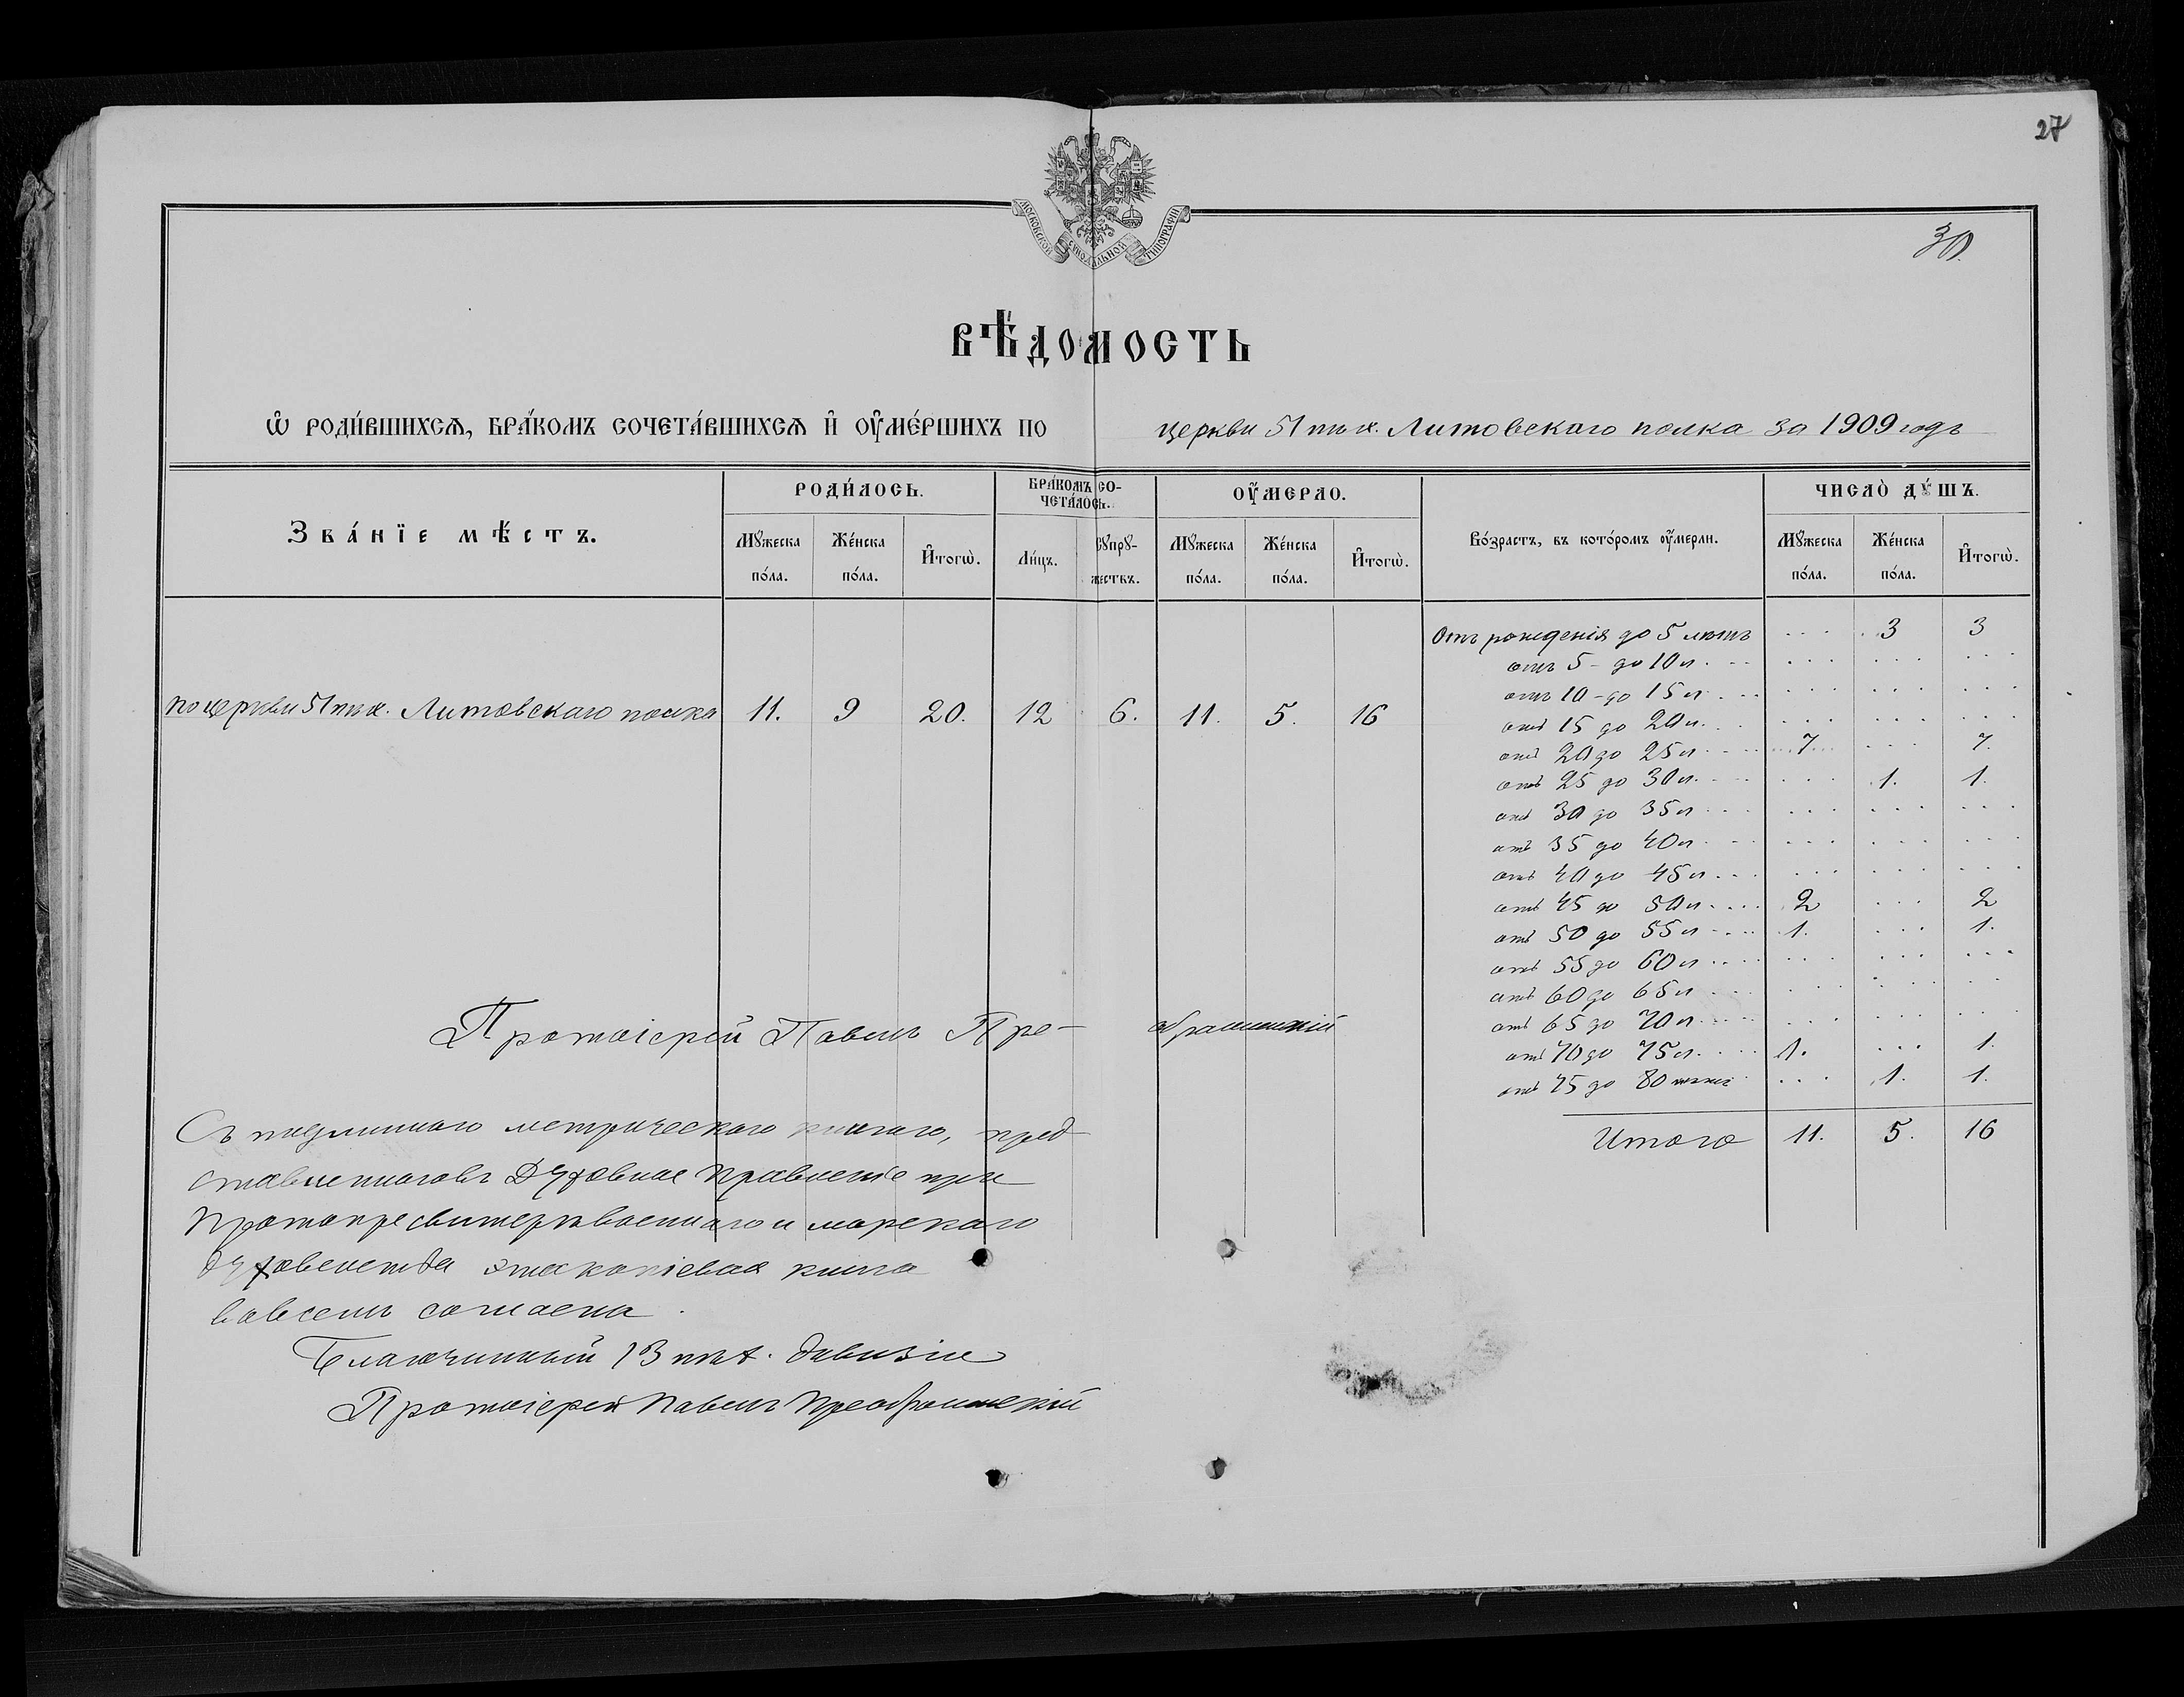 27
30.
МОСКОВСКОЙ СѴНОДАЛЬНОЙ ТИПОГРАФІИ
ВѢ́ДОМОСТЬ
Ѡ҆ РОДИ́ВШИХСѦ, БРА́КОМЪ СОЧЕТА́ВШИХСѦ И҆ ОУ҆МЕ́РШИХЪ ПО церкви 51 пѣх. Литовскаго полка за 1909 годъ
Зва́нїе мѣ́стъ.
РОДИ́ЛОСЬ.
БРА́КОМЪ СО-
ЧЕТА́ЛОСЬ.
ОУ҆́МЕРЛО.
Во́зрастъ, въ кото́ромъ оу҆́мерли.
ЧИСЛО̀ ДꙊ́ШЪ.
Мꙋ́жеска по́ла.
Же́нска по́ла.
И҆тогѡ̀.
Ли́цъ.
Сꙋпрꙋ-
жествъ.
Мꙋ́жеска по́ла.
Же́нска по́ла.
И҆тогѡ̀.
Мꙋ́жеска по́ла.
Же́нска по́ла.
И҆тогѡ̀.
По церкви 51 пѣх. Литовскаго полка 11. 9 20. 12 6. 11. 5. 16
Отъ рожденія до 5 лѣтъ ... 3 3
отъ 5 - до 10 л. ... ... ...
отъ 10 - до 15 л. ... ... ...
отъ 15 до 20 л. ... ... ...
отъ 20 до 25 л. 7 ... 7.
отъ 25 до 30 л. ... 1. 1.
отъ 30 до 35 л. ... ... ...
отъ 35 до 40 л. ... ... ...
отъ 40 до 45 л. ... ... ...
отъ 45 до 50 л. 2 ... 2
отъ 50 до 55 л. 1. ... 1.
отъ 55 до 60 л. ... ... ...
отъ 60 до 65 л. ... ... ...
отъ 65 до 70 л. ... ... ...
отъ 70 до 75 л. 1. ... 1.
отъ 75 до 80 ... 1. 1.
Итого 11. 5. 16
Протоіерей Павелъ Преображенскій
Съ подлинною метрическою книгою, пред
ставленною въ Духовное Правленіе при
Протопресвитерѣ военнаго и морскаго
духовенства эта копіевая книга
во всемъ согласна.
Благочинный 13 пѣх. дивизіи
Протоіерей Павелъ Преображенскій